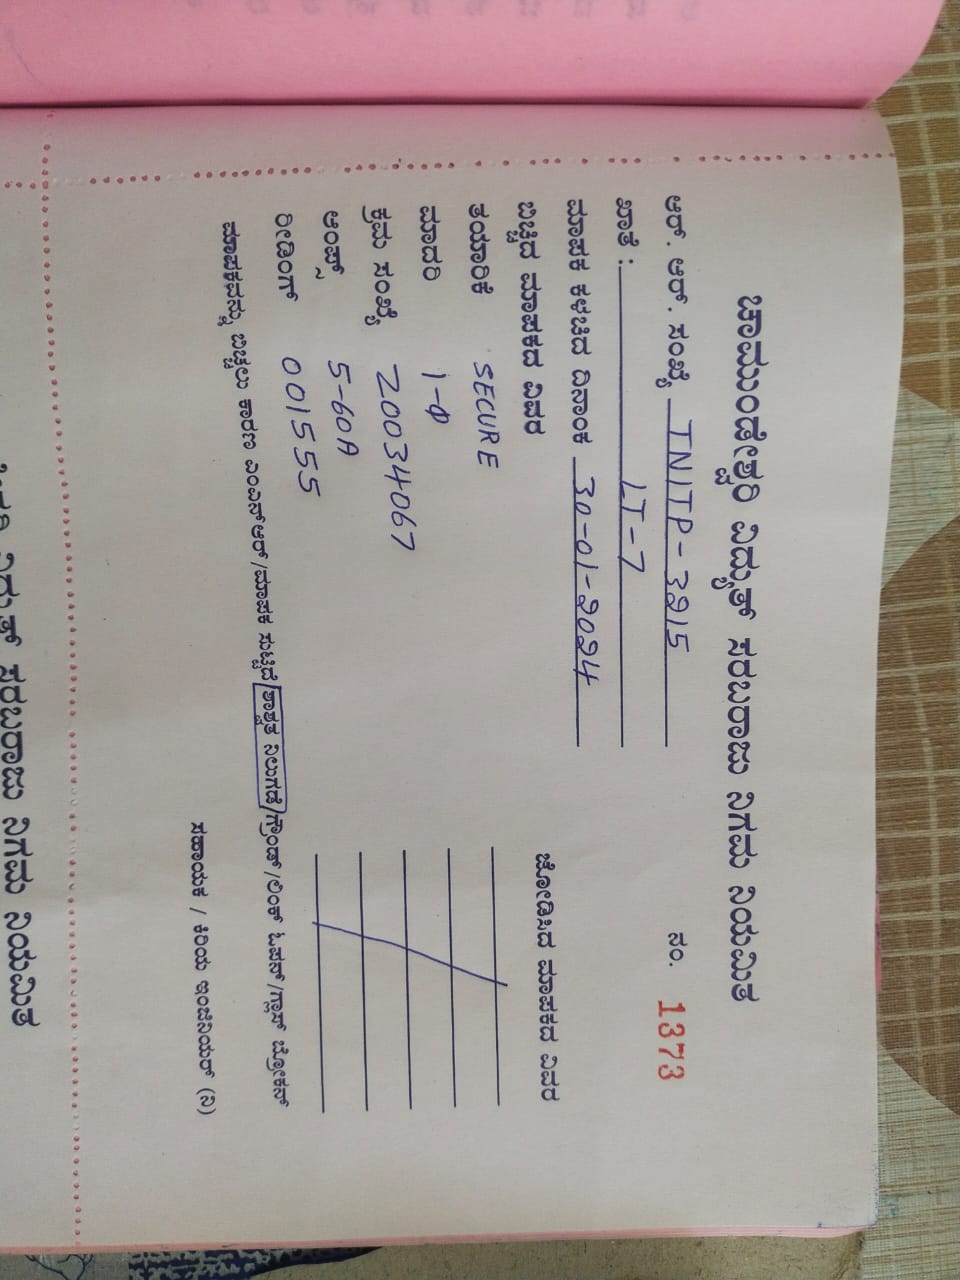 ಚಾಮುಂಡೇಶ್ವರಿ ವಿದ್ಯುತ್ ಸರಬರಾಜು ನಿಗಮ ನಿಯಮಿತ
ಆರ್. ಆರ್. ಸಂಖ್ಯೆ TNITP-3215 ನಂ. 1373
ಖಾತೆ : LT-7
ಮಾಪಕ ಕಳಚಿದ ದಿನಾಂಕ 30-01-2024
ಬಿಚ್ಚಿದ ಮಾಪಕದ ವಿವರ ಜೋಡಿಸಿದ ಮಾಪಕದ ವಿವರ
ತಯಾರಿಕೆ SECURE
ಮಾದರಿ 1-Φ
ಕ್ರಮ ಸಂಖ್ಯೆ 20034067
ಆಂಪ್ಸ್ 5-60A
ರೀಡಿಂಗ್ 001555
ಮಾಪಕವನ್ನು ಬಿಚ್ಚಲು ಕಾರಣ ಎಂಎನ್ಆರ್/ಮಾಪಕ ಸುಟ್ಟಿದೆ/ಶಾಶ್ವತ ನಿಲುಗಡೆ/ಗ್ರೌಂಡ್/ಲಿಂಕ್ ಓಪನ್/ಗ್ಲಾಸ್ ಬ್ರೋಕನ್
ಸಹಾಯಕ / ಕಿರಿಯ ಇಂಜಿನಿಯರ್ (ವಿ)
ವಿದ್ಯುತ್ ಸರಬರಾಜು ನಿಗಮ ನಿಯಮಿತ